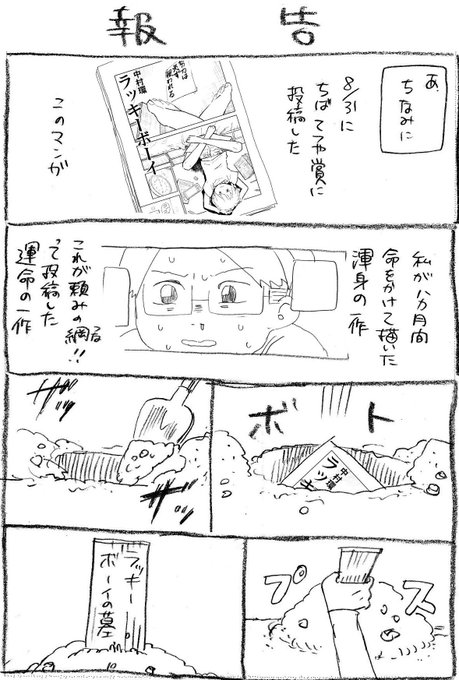 報告
あ、
ちなみに
8/31に
ちばてつや賞に
投稿した
中村環
ラッキーボーイ
このマンガ
私が八カ月間
命をかけて描いた
渾身の一作
これが頼みの綱る!!
って投稿した
運命の一作
ボト
中村環
ラッキ
ザッ
ザッ
プス
ラッキー
ボーイの墓